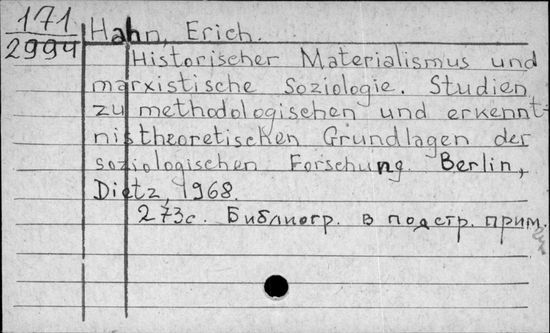 171
2994
Hahn, Erich.
Historischer Materialismus und
marxistische Soziologie. Studien
zu methodologischen und erkennt-
nistheoretischen Grundlagen der
soziologischen Forschung. Berlin,
Dietz, 1968.
273с. Библиогр. в подстр. прим.